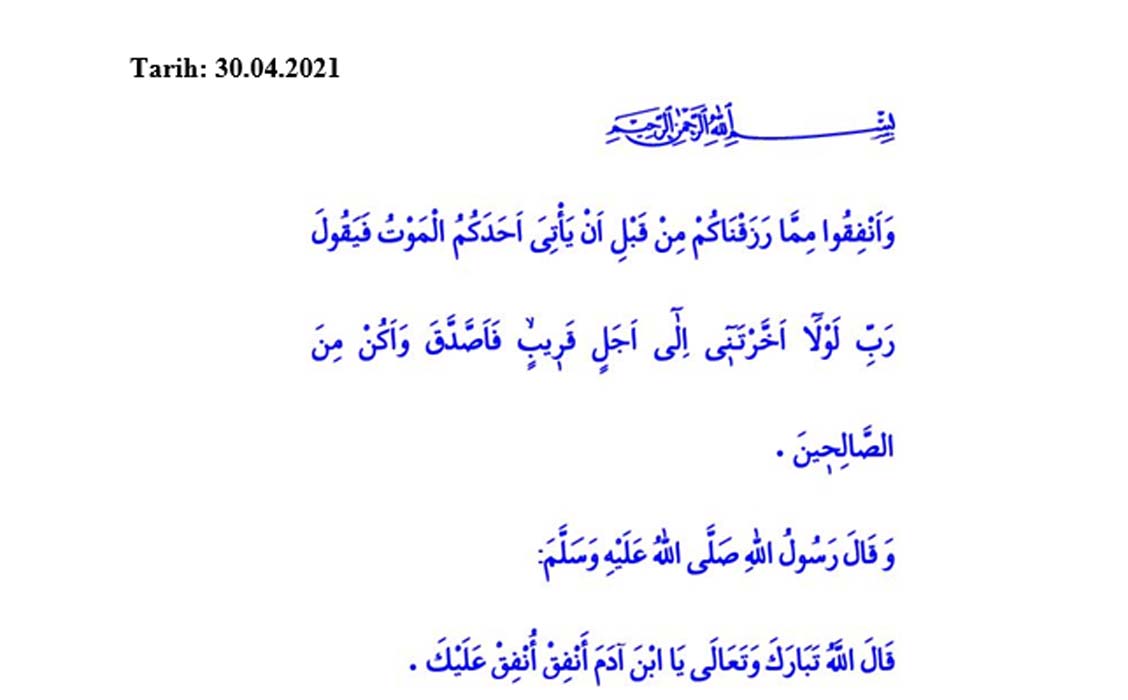 Tarih: 30.04.2021
بِسْمِ اللهِ الرَّحْمٰنِ الرَّحِيمِ
وَاَنْفِقُوا مِمَّا رَزَقْنَاكُمْ مِنْ قَبْلِ اَنْ يَأْتِىَ اَحَدَكُمُ الْمَوْتُ فَيَقُولَ
رَبِّ لَوْلَٓا اَخَّرْتَنٖٓى اِلٰٓى اَجَلٍ قَرٖيبٍۙ فَاَصَّدَّقَ وَاَكُنْ مِنَ
الصَّالِحٖينَ .
وَ قَالَ رَسُولُ اللهِ صَلَّى اللهُ عَلَيْهِ وَسَلَّمَ:
قَالَ اللَّهُ تَبَارَكَ وَتَعَالَى يَا ابْنَ آدَمَ أَنْفِقْ أُنْفِقْ عَلَيْكَ .